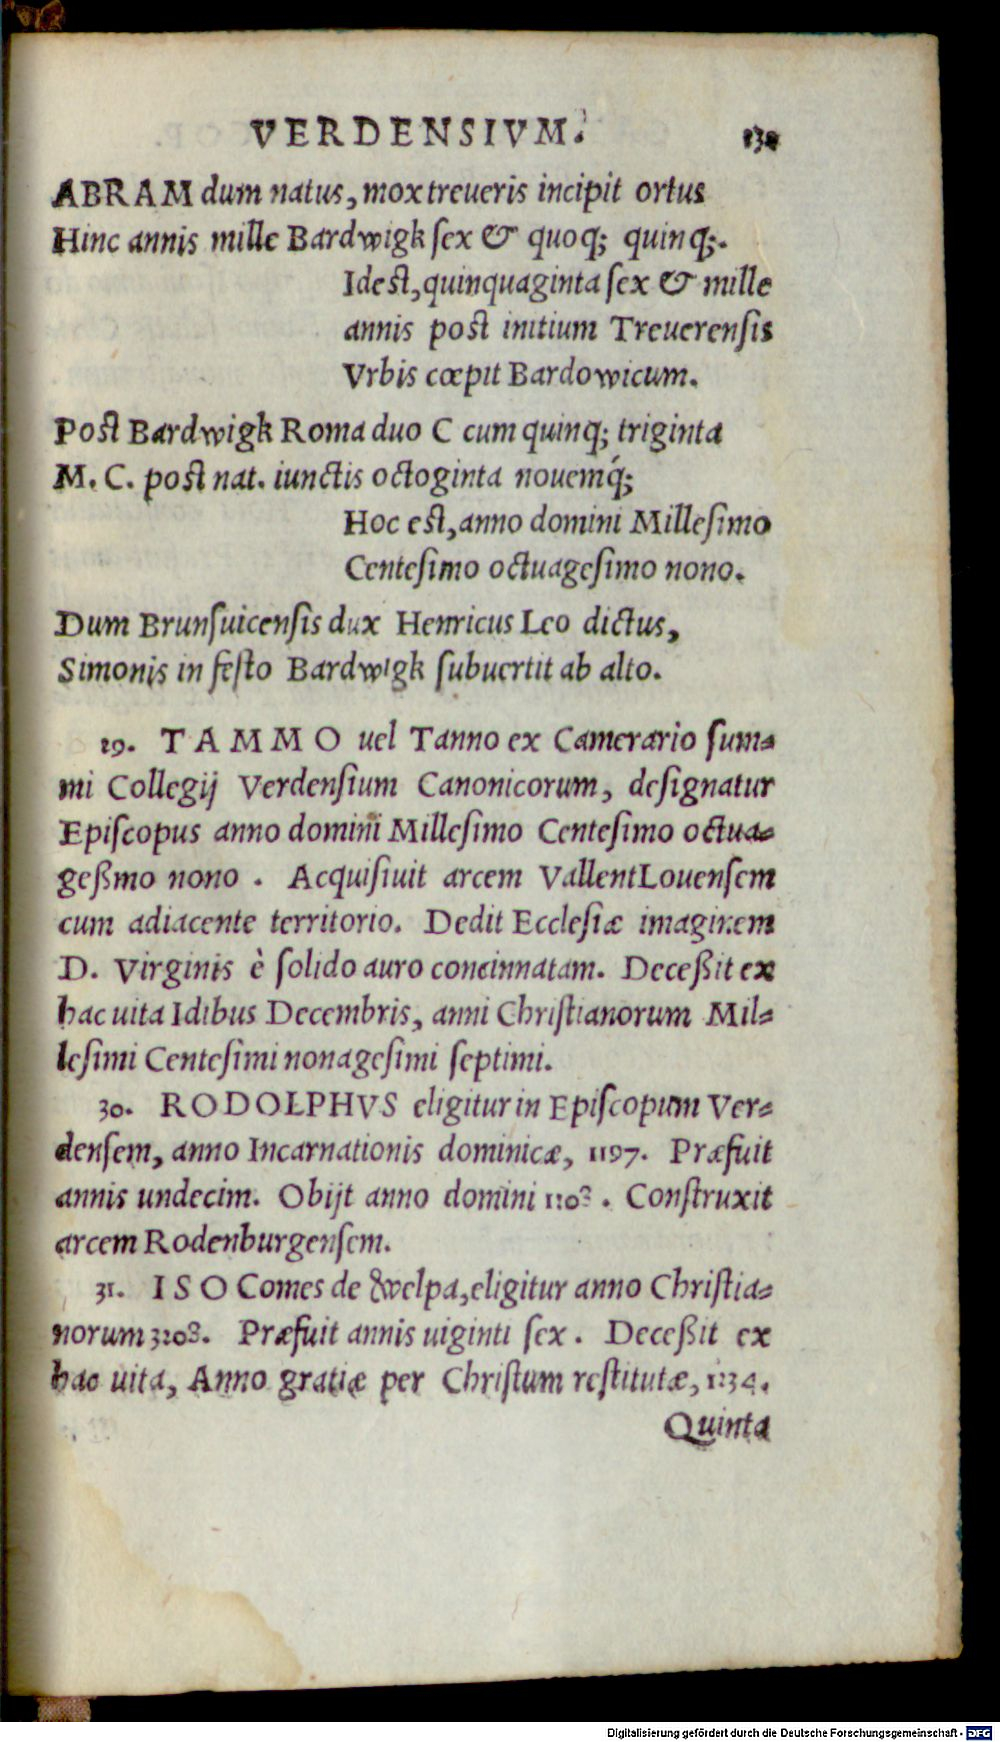 VERDENSIVM.
ABRAM dum natus, mox treueris incipit ortus
Hinc annis mille Bardwigk ſex & quoq; quinq;.
Id eſt, quinquaginta ſex & mille
annis post initium Treuerenſis
Vrbis cœpit Bardowicum.
Post Bardwigk Roma duo C cum quinq; triginta
M. C. post nat. iunctis octoginta nouemq́;
Hoc eſt, anno domini Milleſimo
Centeſimo octuageſimo nono.
Dum Brunſuicenſis dux Henricus Leo dictus,
Simonis in feſto Bardwigk ſubuertit ab alto.
29. TAMMO uel Tanno ex Camerario ſum-
mi Collegij Verdenſium Canonicorum, deſignatur
Epiſcopus anno domini Milleſimo Centeſimo octua-
geßmo nono. Acquiſiuit arcem VallentLouenſem
cum adiacente territorio. Dedit Eccleſiæ imaginem
D. Virginis è ſolido auro concinnatam. Deceßit ex
hac uita Idibus Decembris, anni Chriſtianorum Mil-
leſimi Centeſimi nonageſimi ſeptimi.
30. RODOLPHVS eligitur in Epiſcopum Ver-
denſem, anno Incarnationis dominicæ, 1197. Præfuit
annis undecim. Obijt anno domini. Conſtruxit
arcem Rodenburgenſem.
31. ISO Comes de welpa, eligitur anno Chriſtia-
norum. Præfuit annis uiginti ſex. Deceßit ex
hac uita, Anno gratiæ per Chriſtum reſtitutæ, 1234.
Quinta
Digitalisierung gefördert durch die Deutsche Forschungsgemeinschaft - DFG